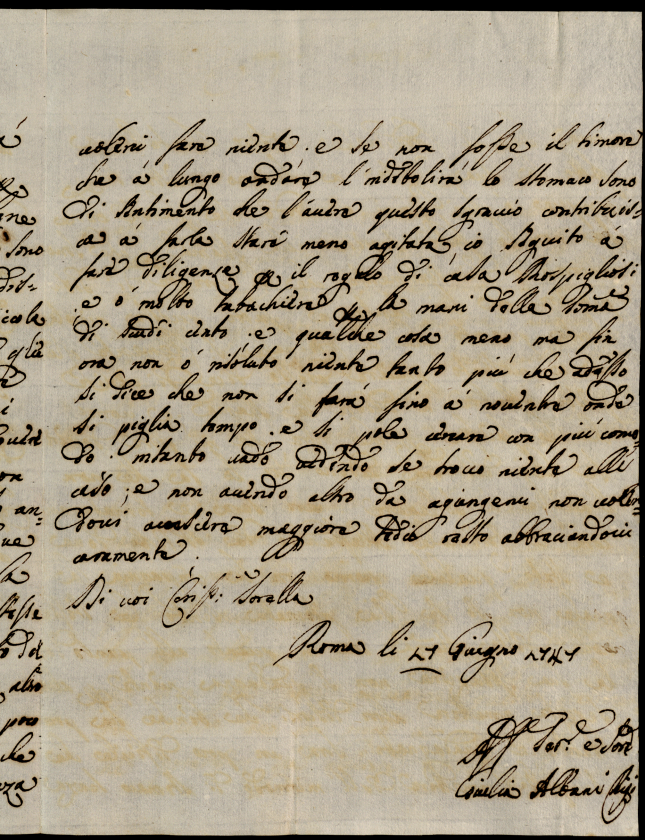 volervi fare niente. e se non fosse il timore
che á lungo andáre l'indebolirá lo stomaco sono
di sentimento che l'avere questo sgravio contribuis=
ca á farla stare meno agitata, io seguito á
fare diligenze per il regalo di casa Rospigliosi
e ó molto tabachiere per le mani della
di scudi cento. e qualche cosa meno ma sin
ora non ó risoluto niente tanto piú che adesso
si dice che non si fará sino á novembre onde
si piglia tempo. e si pole cercare con piú como
do. intanto vado vedendo se trovo niente alle
caso; e non avendo altro da agiungervi non volen=
dovi acrescere maggiore tedio resto abbraciandovi
caramente.
Di voi Cariss: Sorella
Roma li 17 Giugno 1747
Aff. Ser. e Sore
Giulia Albani Chigi
á
sono
des=
an=
che